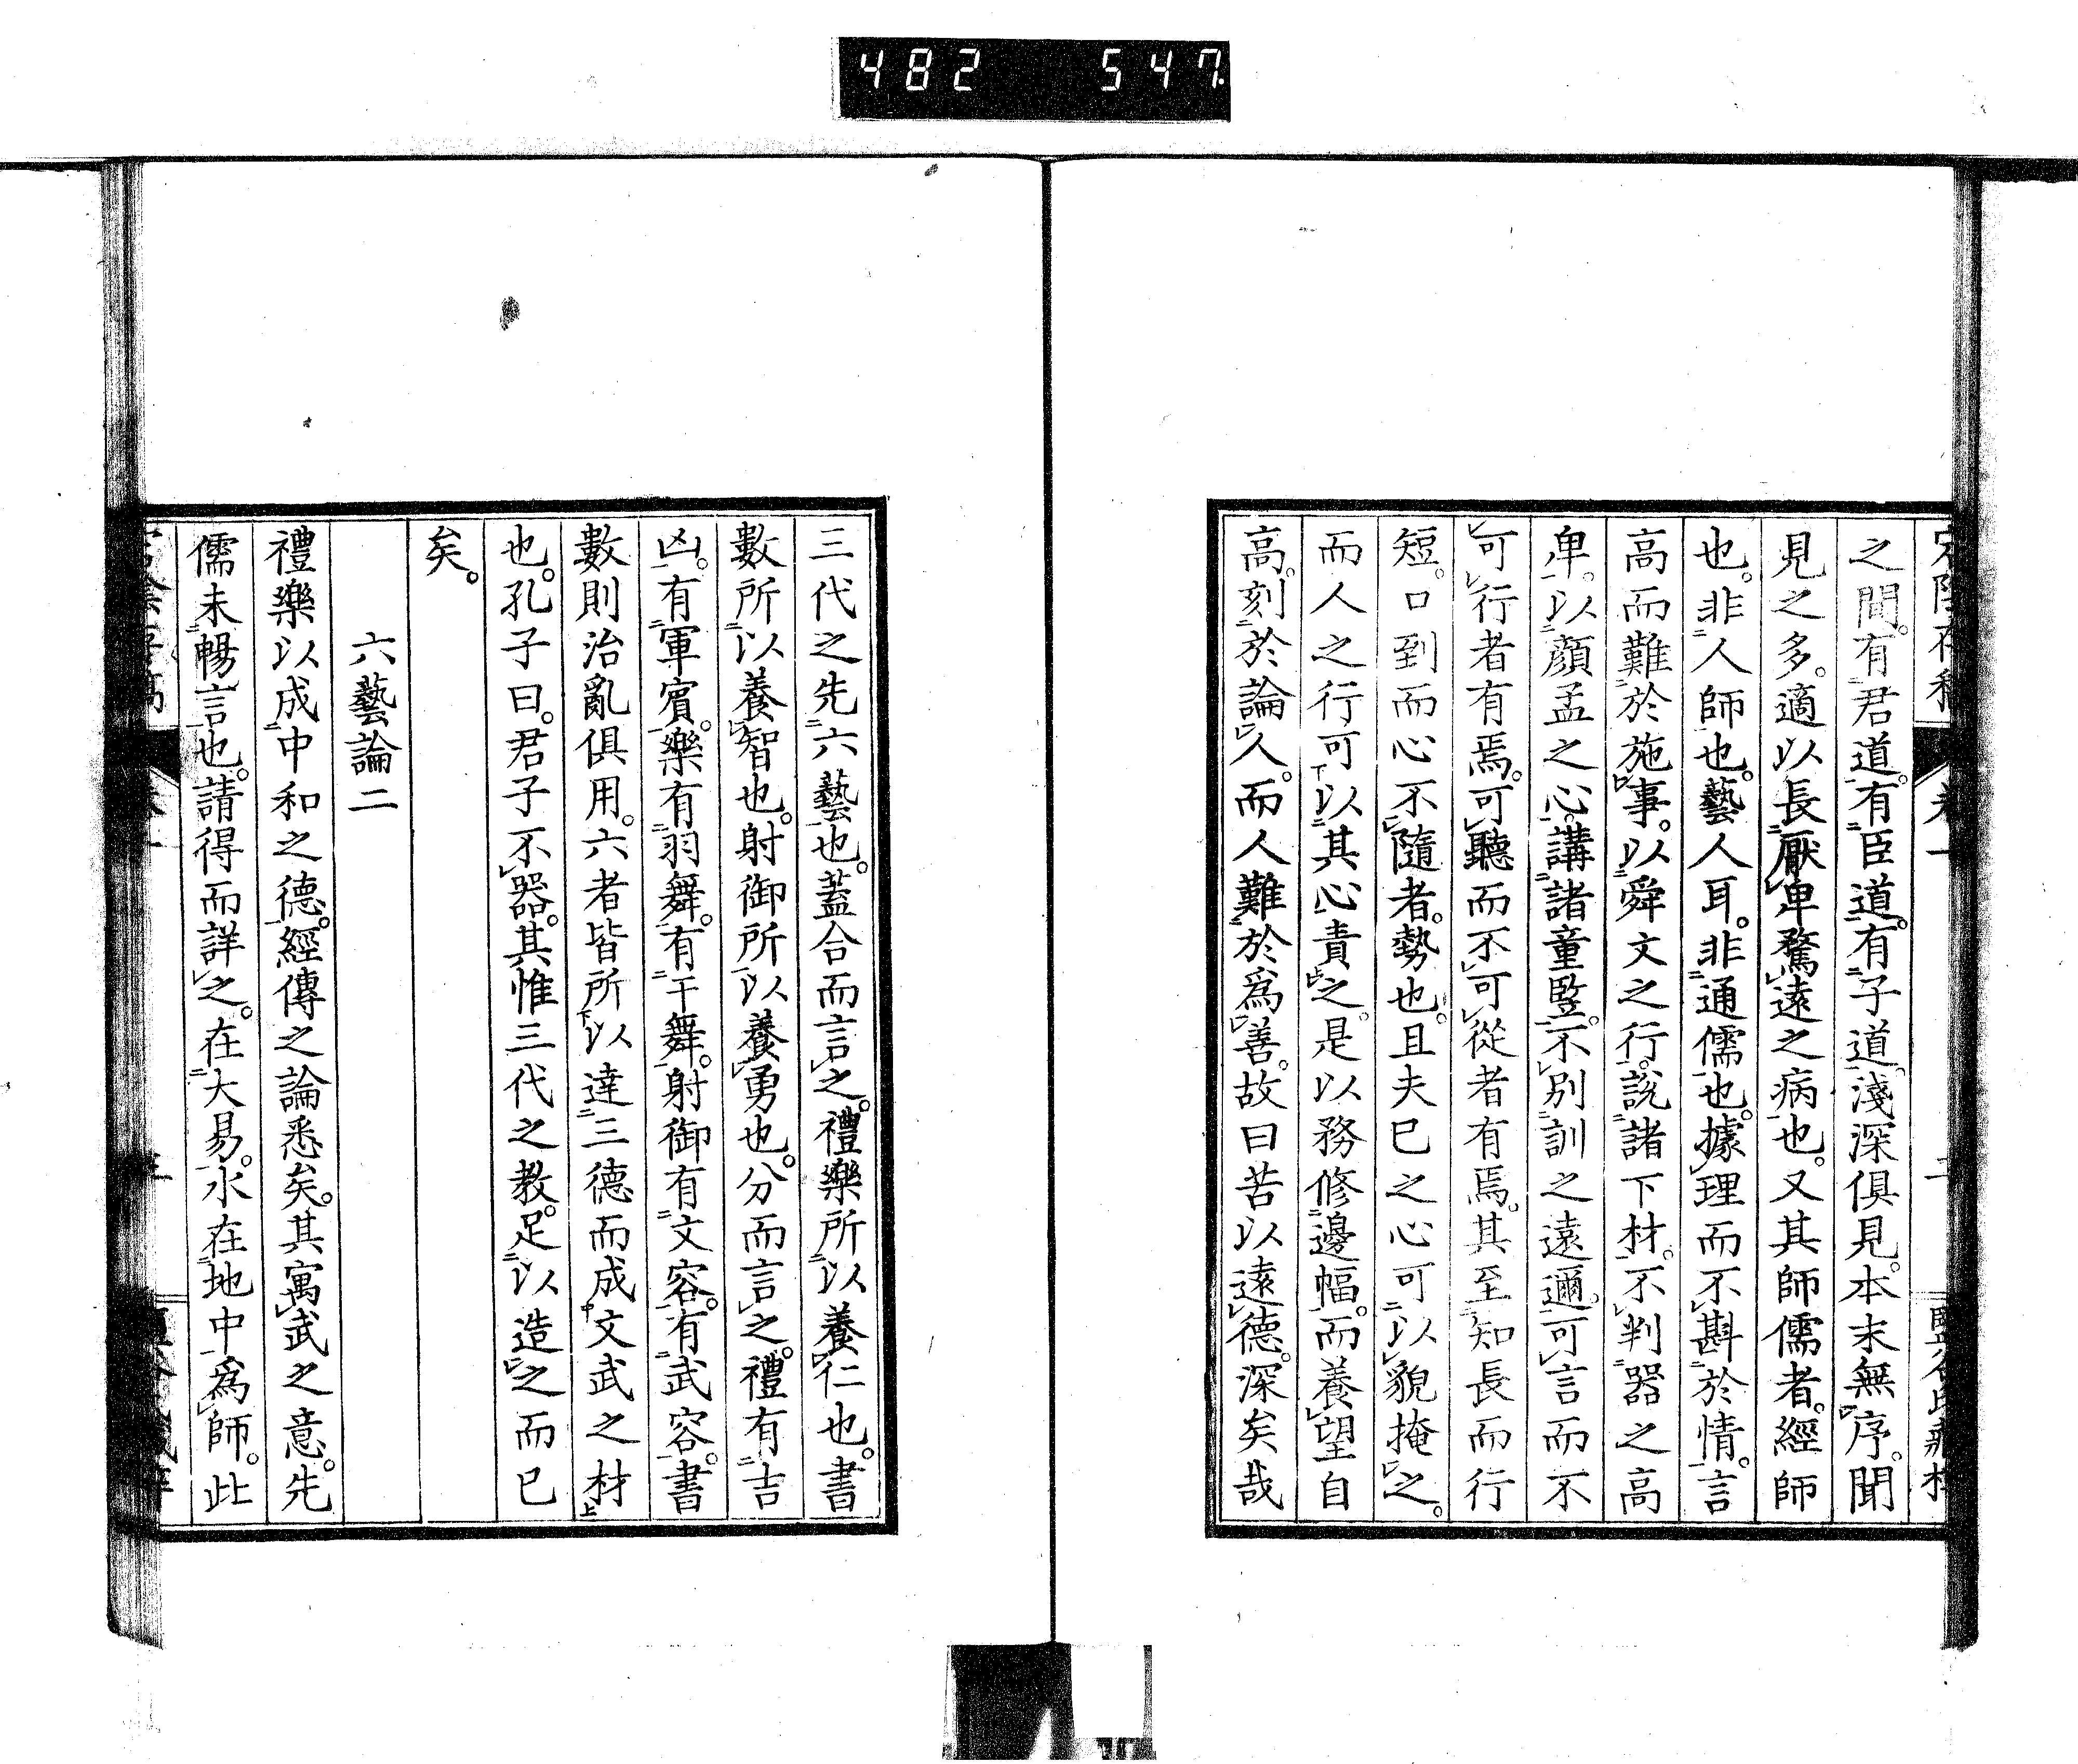 482 547
之間。有君道。有臣道。有子道。淺深俱見。本末無序。聞
見之多。適以長厭卑騖遠之病也。又其師儒者。經師
也。非人師也。藝人耳。非通儒也。據理而不斟於情。言
高而難於施事。以舜文之行。說諸下材。不判器之高
卑。以顏孟之心。講諸童豎。不別訓之遠邇。可言而不
可行者有焉。可聽而不可從者有焉。其至知長而行
短。口到而心不隨者。勢也。且夫已之心可以貌掩之。
而人之行可以其心責之。是以務修邊幅。而養望自
高。刻於論人。而人難於爲善。故曰苦以遠德。深矣哉
三代之先六藝也。蓋合而言之。禮樂所以養仁也。書
數所以養智也。射御所以養勇也。分而言之。禮有吉
凶。有軍賓。樂有羽舞。有干舞。射御有文容。有武容。書
數則治亂俱用。六者皆所以達三德而成文武之材
也。孔子曰。君子不器。其惟三代之教。足以造之而已
矣。
六藝論二
禮樂以成中和之德。經傳之論悉矣。其寓武之意。先
儒未暢言也。請得而詳之。在大易。水在地中爲師。此